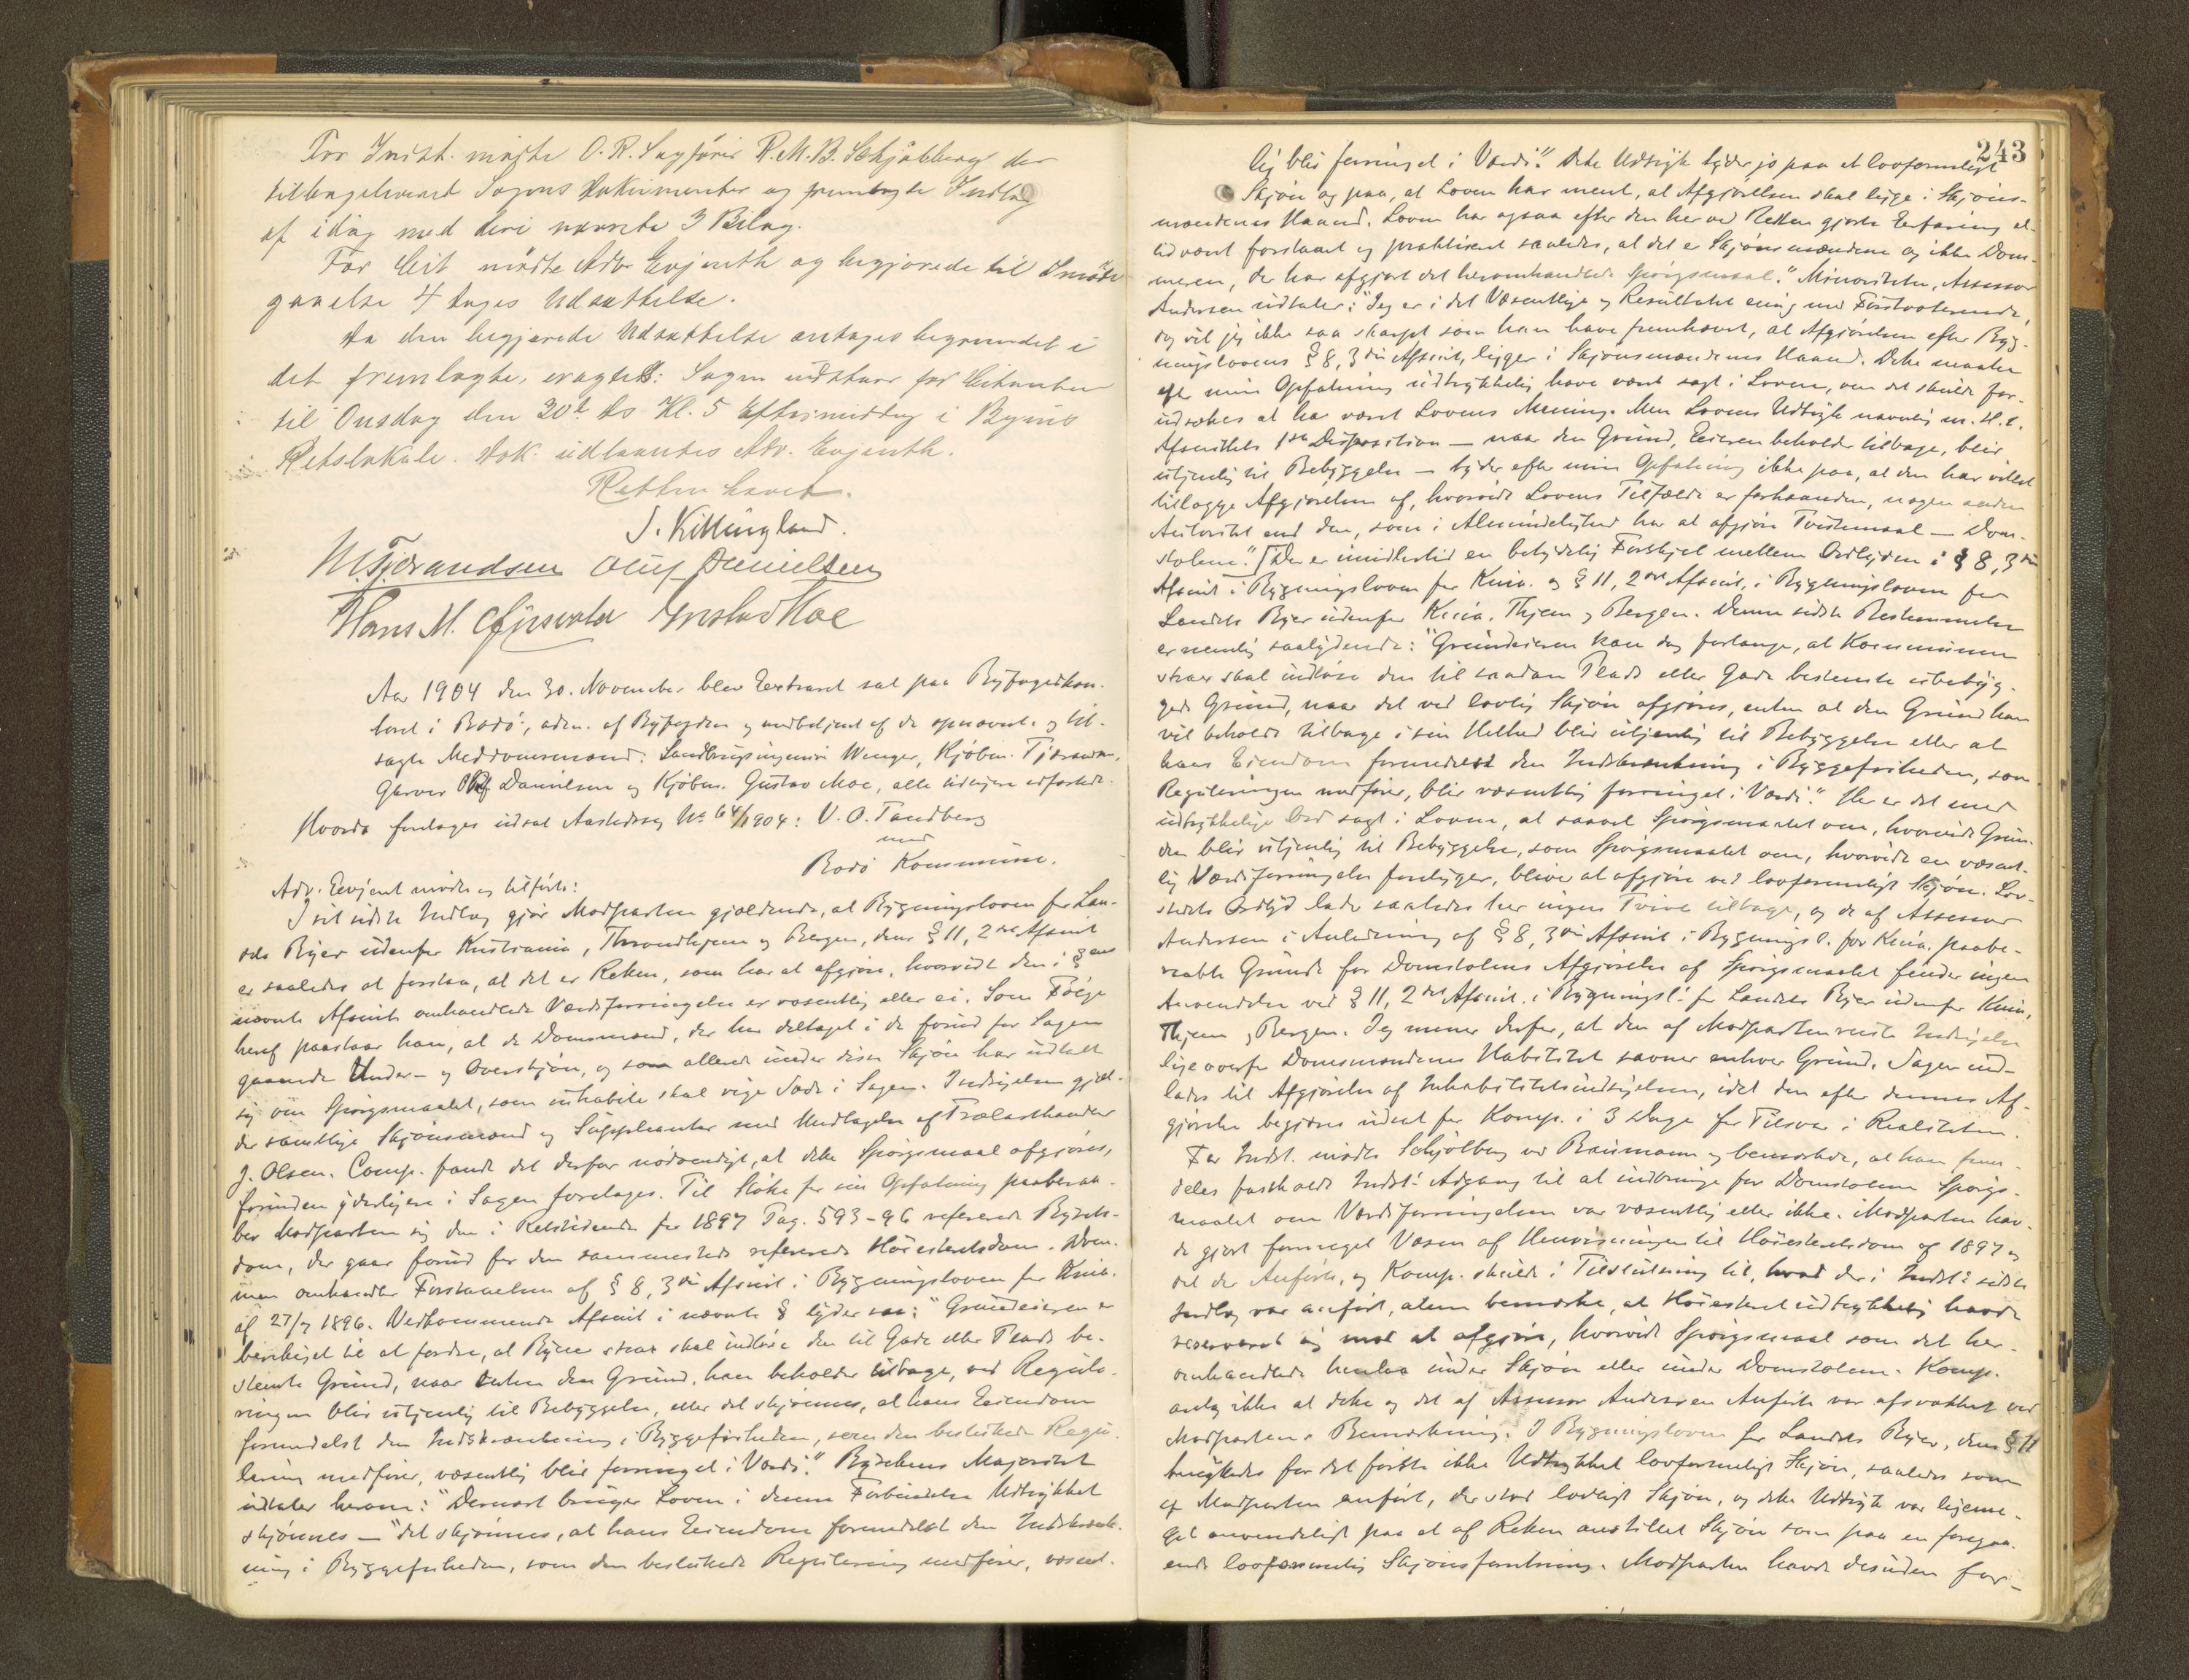 For Indst. mødte O.R. Sagfører R.M.B. Schjølberg der
tilbageleverede Sagens Dokumenter og fremlagde Indlæg
af idag med deri nævnte 3 Bilag.
For Cit. mødte Adv. Evjenth og begjærede til Imøde-
gaaelse 4 dages Udsættelse.
Da den begjærede Udsættelse antages begrundet i
det fremlagte, eragtes: Sagen udstaar for Citanten
til Onsdag den 30te ds Kl. 5 Eftermiddag i Byens
Retslokale. Dok. udlaantes Adv. Evjenth.
Retten hævet.
J. Killengland.
M. Tjærandsen Oluf Danielsen
Hans M. Gustav Moe
Aar 1904 den 30. November blev Extraret sat paa Byfogedkon-
toret i Bodø, adm. af Byfogden og medbetjent af de opnævnte og til-
sagte Meddomsmænd: Landbrugsingeniør Wenger, Kjøbm. Tjærands.,
Garver Oluf Danielsen og Kjøbm. Gustav Moe, alle tidligere edfæstede.
Hvorda foretages udsat Aastedssag No 64/1904: V. O. Tandberg
mod
Bodø Kommune.
Adv. Evjent mødte og tilførte:
I sit sidste Indlæg gjør Modparten gjældende, at Bygningsloven for Lan-
dets Byer udenfor Kristiania, Throndhjem og Bergen, dens § 11, 2det Afsnit
er saaledes at forstaa, at det er Retten, som har at afgjøre, hvorvidt den i § en
nævnte Afsnit omhandlede Værdiforringelse er væsentlig eller ei. Som Følge
heraf paastaar han, at de Domsmænd, der har deltaget i de forud for Sagen
gaaende Under- og Overskjøn, og som allerede under disse Skjøn har udtalt
sig om Spørgsmaalet, som inhabile skal vige Sæde i Sagen. Indsigelsen gjæl-
der samtlige Skjønsmænd og Suppleanter med Undtagelse af Trælasthandler
J. Olsen. Comp. fandt det derfor nødvendigt, at dette Spørgsmaal afgjøres,
forinden yderligere i Sagen foretages. Til Støtte for sin Opfatning paaberaa-
ber Modparten sig den i Retstidende for 1897 Pag. 593-96 refererede Byrets-
dom, der gaar forud for den sammesteds refererede Høiesteretsdom. Dom-
men omhandler Forstaaelsen af § 8, 3die Afsnit i Bygningsloven for Kria.
af 27/7 1896. Vedkommende Afsnit i nævnte § lyder saa: "Grundeieren er
berettiget til at fordre, at Byen strax skal indløse den til Gade eller Plads be-
stemte Grund, naar enten den Grund, han beholder tilbage, ved Regule-
ringen blir utjenlig til Bebyggelse, eller det skjønnes, at hans Eiendom
formedelst den Indskrænkning i Byggefriheden, som den besluttede Regu-
lering medfører, væsentlig blir forringet i Værdi." Byrettens Majoritet
udtaler herom: "Dernæst bruger Loven i denne Forbindelse Udtrykket
skjønnes — "det skjønnes, at hans Eiendom formedelst den Indskrænk-
ning i Byggefriheden, som den besluttede Regulering medfører, væsent-
243
lig blir forringet i Værdi." Dette Udtryk tyder jo paa et lovformeligt
Skjøn og paa, at Loven har ment, at Afgjørelsen skal ligge i Skjøns-
mændenes Haand. Loven har ogsaa efter den her ved Retten gjorte Erfaring al-
tid været forstaaet og praktiseret saaledes, at det er Skjønsmændene og ikke Dom-
meren, der har afgjort det heromhandlede Spørgsmaal." Minoriteten, Assessor
Andersen udtaler: "Jeg er i det Væsentlige og Resultatet enig med Førstvoterende,
dog vil jeg ikke saa skarpt som han have fremhævet, at Afgjørelsen efter Byg-
ningslovens § 8, 3die Afsnit, ligger i Skjønsmændenes Haand. Dette maatte
efter min Opfatning udtrykkelig have været sagt i Loven, om det skulde for-
udsættes at ha været Lovens Mening. Men Lovens Udtryk navnlig m. H. t.
Afsnittets 1ste Disposition — naar den Grund, Eieren beholder tilbage, blir
utjenlig til Bebyggelse — tyder efter min Opfatning ikke paa, at den har villet
tillægge Afgjørelsen af, hvorvidt Lovens Tilfælde er forhaanden, nogen anden
Autoritet end den, som i Almindelighed har at afgjøre Tvistemaal — Dom-
stolene." Der er imidlertid en betydelig Forskjel mellem Ordlyden i § 8, 3die
Afsnit i Bygningsloven for Kria. og § 11, 2det Afsnit, i Bygningsloven for
Landets Byer udenfor Kria, Thjem og Bergen. Denne sidste Bestemmelse
er nemlig saalydende: "Grundeieren kan dog forlange, at Kommunen
strax skal indløse den til saadan Plads eller Gade bestemte ubebyg-
gede Grund, naar det ved lovlig Skjøn afgjøres, enten at den Grund han
vil beholde tilbage i sin Helhed blir utjenlig til Bebyggelse eller at
hans Eiendom formedelst den Indskrænkning i Byggefriheden, som
Reguleringen medfører, blir væsentlig forringet i Værdi." Her er det med
udtrykkelige Ord sagt i Loven, at saavel Spørgsmaalet om, hvorvidt Grun-
den blir utjenlig til Bebyggelse, som Spørgsmaalet om, hvorvidt en væsent-
lig Værdiforringelse foreligger, bliver at afgjøre ved lovformeligt Skjøn. Lov-
stedets Ordlyd lader saaledes her ingen Tvivl tilbage, og de af Assessor
Andersen i Anledning af § 8, 3die Afsnit i Bygningsl. for Kria. paabe-
raabte Grunde for Domstolens Afgjørelse af Spørgsmaalet finder ingen
Anvendelse ved § 11, 2det Afsnit i Bygningsl. for Landets Byer udenfor Kria,
Thjem, Bergen. Jeg mener derfor, at den af Modparten reiste Indsigelse
ligeoverfor Domsmændenes Habilitet savner enhver Grund. Sagen ind-
lades til Afgjørelse af Inhabilitetsindsigelsen, idet den efter dennes Af-
gjørelse begjæres udsat for Komp. i 3 Dage for Tilsvar i Realiteten.
For Indst. mødte Schjølberg ved Baumann og bemærkede, at han frem-
deles fastholdt Indst.s Adgang til at indbringe for Domstolene Spørgs-
maalet om Værdiforringelsen var væsentlig eller ikke. Modparten hav-
de gjort formeget Væsen af Henvisningen til Høiesteretsdom af 1897 og
det der Anførte, og Komp. skulde i Tilslutning til, hvad der i Indst.s sidste
Indlæg var anført, alene bemærke, at Høiesteret udtrykkelig havde
reserveret sig mod at afgjøre, hvorvidt Spørgsmaal som det her-
omhandlede henhø under Skjøn eller under Domstolene. Komp.
antog ikke at dette og det af Assessor Andersen Anførte var afsvækket ved
Modpartens Bemærkning. I Bygningsloven for Landets Byer, dens § 11
brugtes for det første ikke Udtrykket lovformeligt Skjøn, saaledes som
af Modparten anført, der stod lovligt Skjøn, og dette Udtryk var ligeme-
get anvendeligt paa et af Retten anstillet Skjøn som paa en foregaa-
ende lovformelig Skjønsforretning. Modparten havde desuden for-